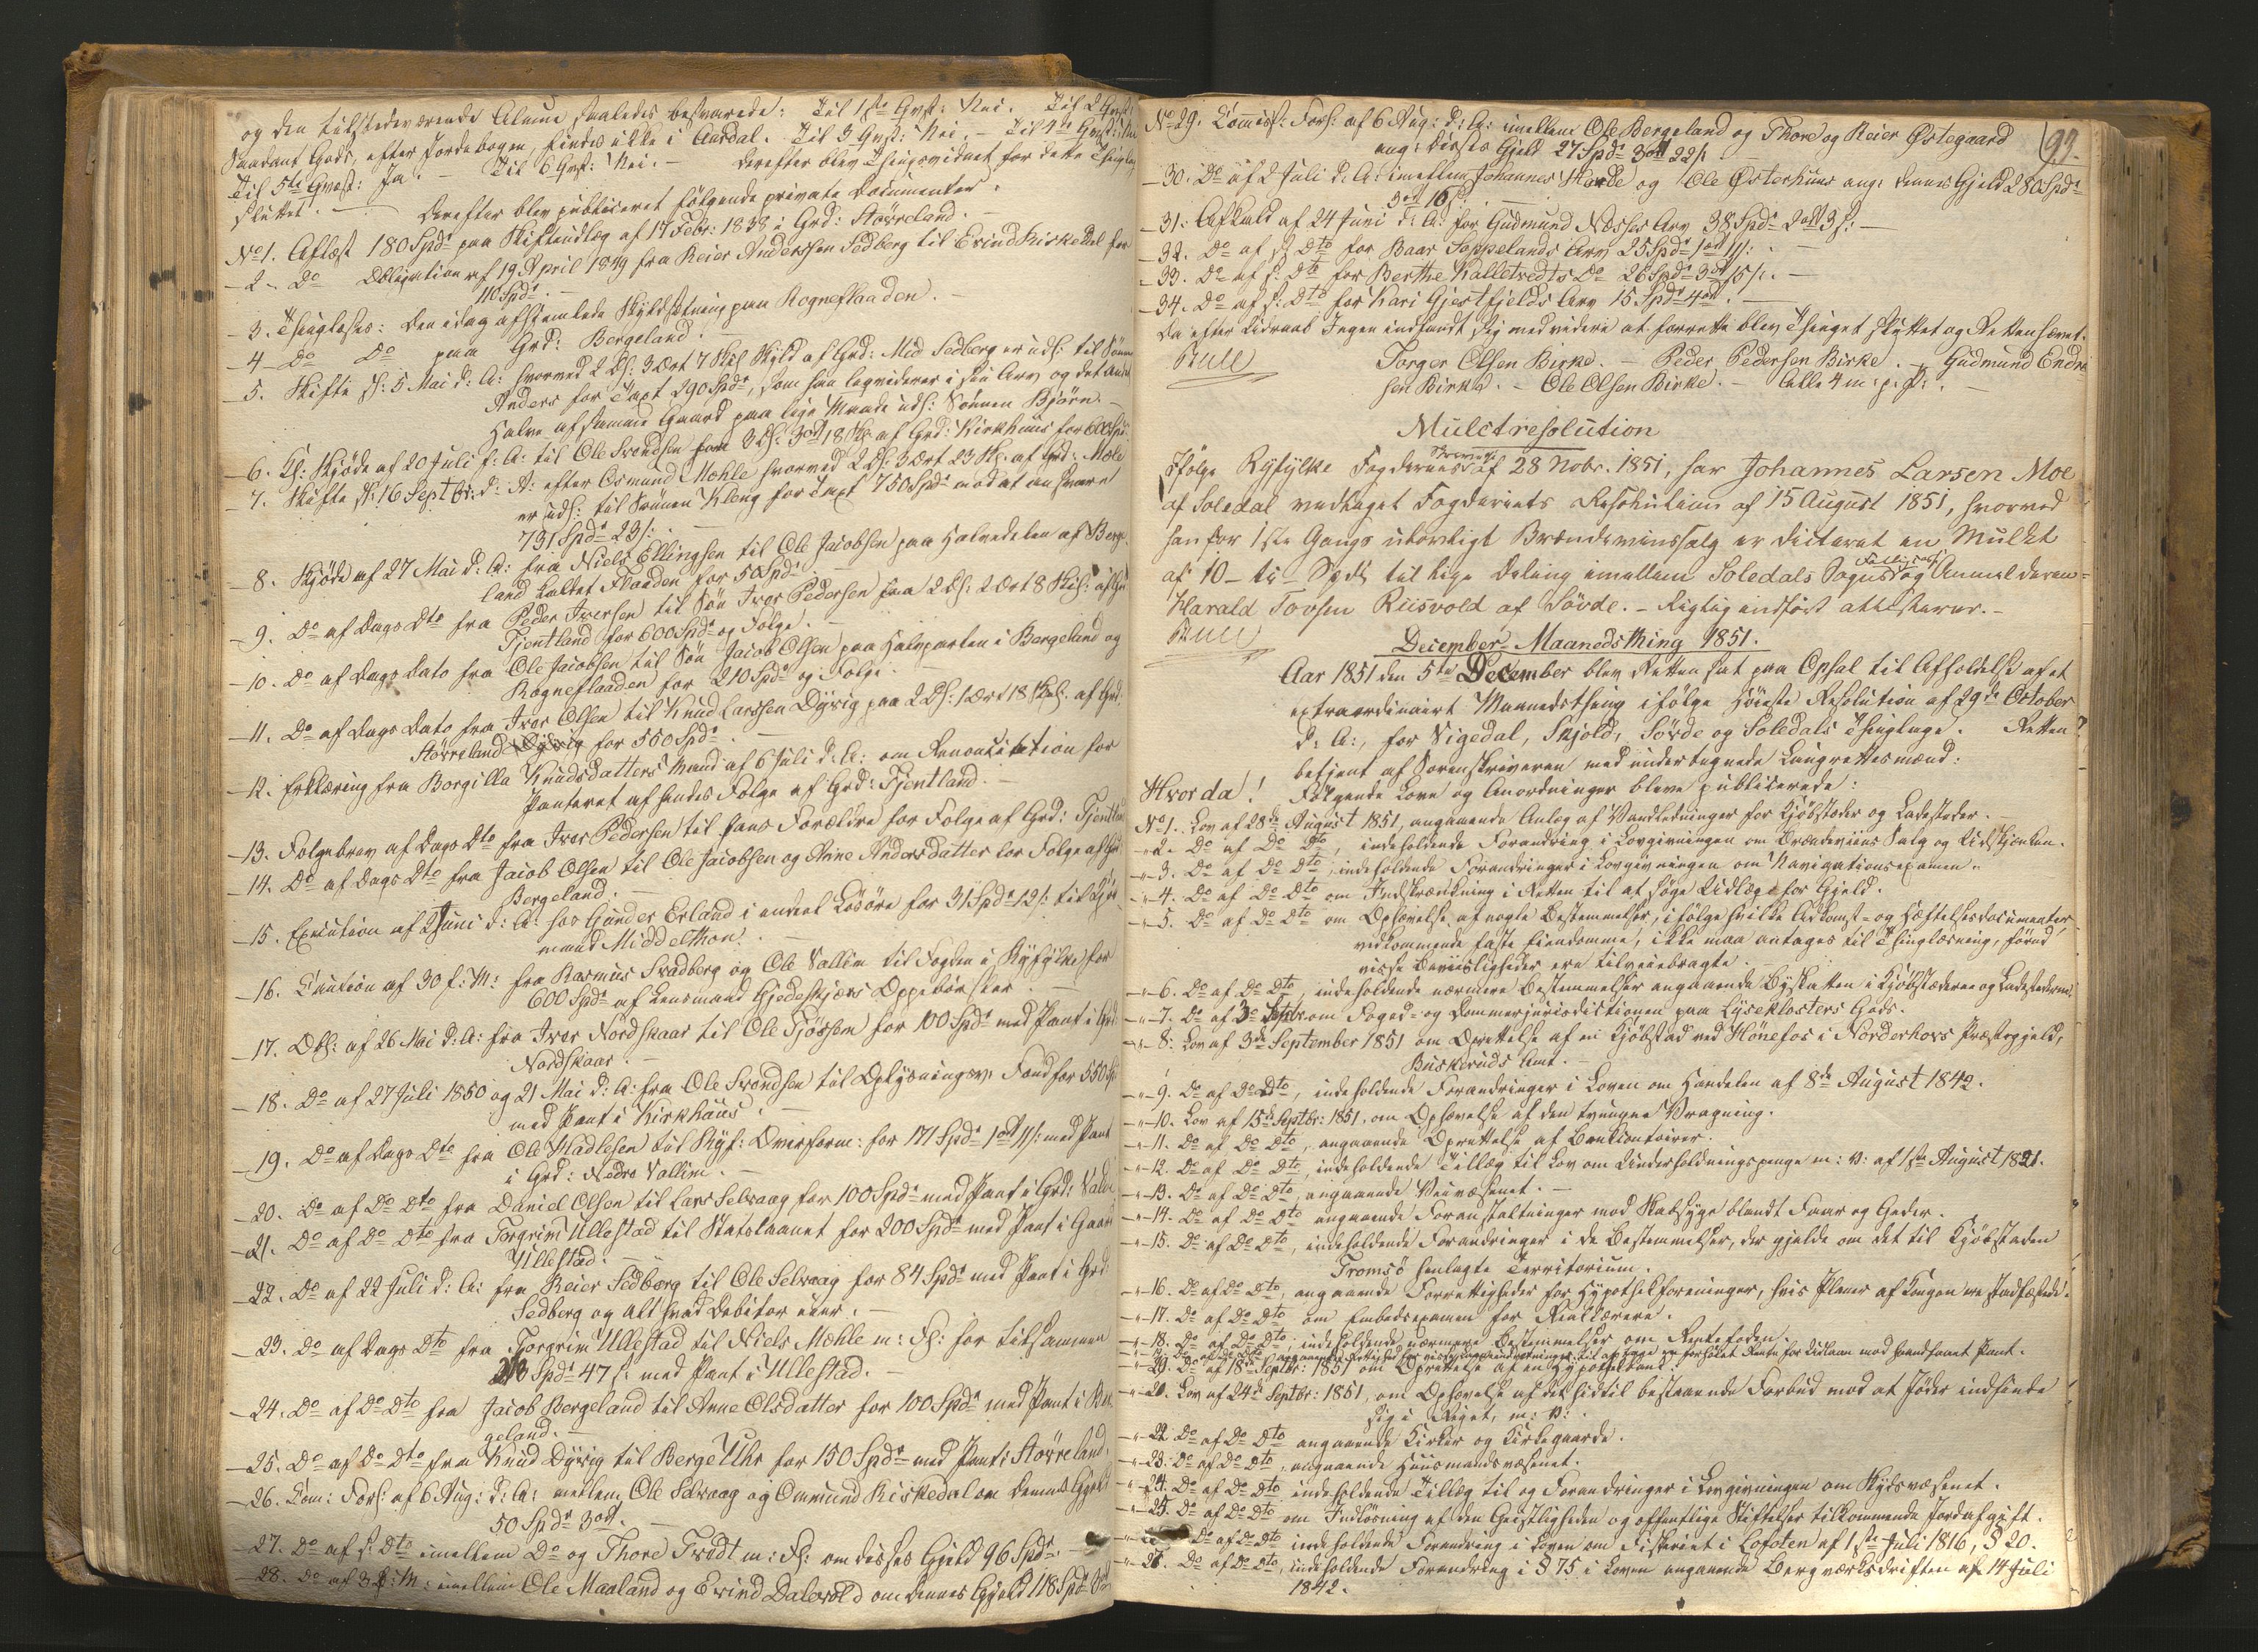 og den tilstedeværende Almue saaledes besvarede: Til 1ste Qvst: Nei. Til 2 Qvst:
Saadant Gods, efter Jordebogen, findes ikke i Aardal. Til 3 Qvst: Nei. – Til 4de Qvst: Nei
Til 5te Qvæst: Ja. – Til 6 Qvst: Nei. – Derefter blev Thingsvidnet for dette Thinglag
sluttet. – Derefter blev publiceret følgende private Documenter.
No 1. Aflæst 180 Spdr paa Skifteudlæg af 17 Febr: 1838 i Grd: Størreland. –
– 2 – Do Obligation af 19 April 1849 fra Reier Anderssen Sedberg til Evind Kirkedal for
110 Spdr. –
– 3. Thinglæses: Den idag afhjemlede Skyldsætning paa Rogneflaaden. –
– 4 – Do Do paa Grd: Bergeland.
– 5. Skifte sl: 5 Mai d: A: hvorved 2 Lø: 3 Ort 7 Skil Skyld af Grd: Med Sedberg er uds: til Sønnen
Anders for Taxt 290 Spdr, som han liqviderer i sin Arv og det andet
Halve af samme Gaard paa lige Maade uds: Sønnen Bjørn. –
– 6. Kl: Skjøde af 20 Juli f: A: til Ole Svendsen paa 3 Lø: 3 Ort 18 Sk af Grd: Kirkhuus for 600 Spd
– 7. Skifte sl: 16 Septbr: d: A: efter Osmund Mæhle hvorved 2 Lø: 3 Ort 23 Sk: af Grd: Mæle
er uds: til Sønnen Kleng for Taxt 750 Spdr mod at an svare
731 Spdr 23 s: –
– 8. Skjøde af 27 Mai d: A: fra Niels Ellingsen til Ole Jacobsen paa Halvedelen af Berge-
land kaldet Flaaden for 50 Spdr. –
– 9. Do af Dags Dto fra Peder Iversen til Søn Iver Pedersen paa 2 Lø: 2 Ort 8 Skil: af Grd
Tjentland for 600 Spdr og Folge. –
– 10. Do af Dags Dato fra Ole Jacobsen til Søn Jacob Olsen paa Halvparten i Bergeland og
Rogneflaaden for 210 Spdr og Folge. –
– 11. Do af Dags Dato fra Iver Olsen til Knud Larssen Dyrvig paa 2 Lø: 1 Ort 18 Skil: af Grd
Størreland for 550 Spdr. –
– 12. Erklæring fra Borgilla Knudsdatters Mand af 6 Juli d: A: om Renontiation for
Panteret af hendes Folge af Grd: Tjentland. –
– 13. Folgebrev af Dags Dto fra Iver Pedersen til hans Forældre for Folge af Grd: Tjentland
– 14. Do af Dags Dto fra Jacob Olsen til Ole Jacobsen og Anne Andersdatter for Folge af Grd
Bergeland. –
– 15. Execution af 2 Juni d: A: hos Gunder Erland i endeel Løsøre for 31 Spdr 12 s: til Kjøb
mand Middelthon. –
– 16. Caution af 30 f: M: fra Rasmus Svadberg og Ole Vallem til Fogden i Ryfylke for
600 Spdr af Lensmand Gjedeskjærs Oppebørsler. –
– 17. Obl: af 26 Mai d: A: fra Iver Nordskaar til Ole Tjøssem for 100 Spdr med Pant i Grd
Nordskaar. –
– 18. Do af 27 Juli 1850 og 21 Mai d: A: fra Ole Svendsen til Oplysningsv: Fond for 550 Sp
med Pant i Kirkhuus. –
– 19. Do af Dags Dto fra Ole Madlesen til Ryf: Overform: for 171 Spdr 1 Ort 11 s: med Pant
i Grd: Nedre Vallem. –
– 20. Do af Do Dto fra Daniel Olsen til Lars Selvaag for 100 Spdr med Pant i Grd: Valle
– 21. Do af Do Dto fra Torgrim Ullestad til Statslaanet for 200 Spdr med Pant i Gaard
Ullestad. –
– 22. Do af 22 Juli d: A: fra Reier Sedberg til Ole Selvaag for 84 Spdr med Pant i Grd:
Sedberg og alt hvad Debitor eier. –
– 23. Do af Dags Dto fra Torgrim Ullestad til Niels Mæhle m: Fl: for tilsammen
Spdr 47 s: med Pant i Ullestad. –
– 24. Do af Do Dto fra Jacob Bergeland til Anne Olsdatter for 100 Spdr med Pant i Ber-
geland. –
– 25. Do af Do Dto fra Knud Dyrvig til Berge Uhr for 150 Spdr med Pant i Størreland.
– 26. Com: Forl: af 6 Aug: d: A: mellem Ole Selvaag og Ommund Kirkedal om dennes Gjeld
50 Spdr 3 Ort. –
– 27. Do af s: Dto imellem Do og Thore Tvedt m: Fl: om disses Gjeld 96 Spdr. –
– 28. Do af 3 f: M: imellem Ole Maaland og Evind Dalevold om dennes Gjeld 118 Spdr
93.
No 29. Comiss: Forl: af 6 Aug: d: A: imellem Ole Bergeland og Thore og Reier Østegaard
ang: disses Gjeld 27 Spdr 3 Ort 22 s.
– 30. Do af 2 Juli d: A: imellem Johannes Hovde og Ole Østerhuus ang: dennes Gjeld 280 Spdr
3 Ort 16 s. –
– 31. Afkald af 24 Juni d: A: for Gudmund Næsses Arv 38 Spdr 2 Ort 3 s: –
– 32. Do af s: Dto for Baar Soppelands Arv 25 Spdr 1 Ort 11 s: –
– 33. Do af s: Dto for Berthe Kalletvedts Do 26 Spdr 3 Ort 15 s. –
– 34. Do af s: Dto for Kari Gjestfjelds Arv 15 Spdr 4 Ort. –
Da efter Udraab Ingen indfandt sig med videre at forrette blev Thinget sluttet og Retten hævet.
Torger Olsen Birke. – Peder Pedersen Birke. – Gudmund Endre-
sen Birke. – Ole Olsen Birke. – Alle 4 m: p: P: –
Mulctresolution
Ifølge Ryfylke Fogderies Skrivelse af 28 Nobr. 1851, har Johannes Larsen Moe
af Soledal vedtaget Fogderiets Resolution af 15 August 1851, hvorved
han for 1ste Gangs ulovligt Brændeviinssalg er dicteret en Mulct
af 10 – ti – Spdlr til lige Deling imellem Soledals Sogns Fattigcasse og Anmelderen =
Harald Tovsen Riisvold af Søvde. – Rigtig indført attesterer. –
December-Maanedsthing 1851.
Aar 1851 den 5te December blev Retten sat paa Opsal til Afholdelse af et
extraordinairt Maanedsthing ifølge høieste Resolution af 29de October
d: A:, for Vigedal, Skjold, Søvde og Soledals Thinglage. Retten
betjent af Sorenskriveren med undertegnede Laugrettesmænd:
Hvorda! Følgende Love og Anordninger bleve publicerede:
No 1. Lov af 28de August 1851, angaaende Anlæg af Vandledninger for Kjøbstæder og Ladesteder. –
–"– 2. Do af Do Dto, indeholdende Forandring i Lovgivningen om Brændeviins Salg og Udskjænken.
–"– 3. Do af Do Dto, indeholdende Forandringer i Lovgivningen om Navigationsexamen. –
–"– 4. Do af Do Dto om Indskrænkning i Retten til at søge Udlæg for Gjeld.
–"– 5. Do af Do Dto om Ophævelse af nogle Bestemmelser, ifølge hvilke Adkomst- og Hæftelsesdocumenter
vedkommende faste Eiendomme, ikke maa antages til Thinglæsning, førend
visse Beviisligheder ere tilveiebragte. –
–"– 6. Do af Do Dto, indeholdende nærmere Bestemmelser angaaende Byskatten i Kjøbstæderne og Ladestederne.
–"– 7. Do af 3de Septbr om Foged- og Dommerjurisdictionen paa Lyseklosters Gods.
–"– 8. Lov af 3de September 1851 om Oprettelse af en Kjøbstad ved Hønefos i Norderhovs Præstegjeld,
Buskeruds Amt. –
–"– 9. Do af Do Dto, indeholdende Forandringer i Loven om Handelen af 8de August 1842.
–"– 10. Lov af 15de Septbr: 1851, om Ophævelse af den tvungne Vragning.
–"– 11. Do af Do Dto, angaaende Oprettelse af Bankcontoirer.
–"– 12. Do af Do Dto, indeholdende Tillæg til Lov om Underholdningspenge m: V: af 1ste August 1821.
–"– 13. Do af Do Dto, angaaende Veivæsenet. –
–"– 14. Do af Do Dto angaaende Foranstaltninger mod Skabsyge blandt Faar og Geder.
–"– 15. Do af Do Dto, indeholdende Forandringer i de Bestemmelser, der gjelde om det til Kjøbstaden
Tromsø henlagte Territorium.
–"– 16. Do af Do Dto, angaaende Forrettigheder for Hypothekforeninger, hvis Planer af Kongen ere stadfæstede.
–"– 17. Do af Do Dto om Embedsexamen for Reallærere.
–"– 18. Do af Do Dto, indeholdende nærmere Bestemmelser om Rentefoden.
–"– 19. Do af Do Dto angaaende Rettighed for visse Laaneindretninger til at tage en forhøiet Rente for Udlaan mod haandfaaet Pant.
–"– 20. Do af 18de Septbr: 1851 om Oprettelse af en Hypothekbank.
–"– 21. Lov af 24de Septbr: 1851, om Ophævelse af det hidtil bestaaende Forbud mod at Jøder indfinde
sig i Riget, m: V: .
–"– 22. Do af Do Dto angaaende Kirker og Kirkegaarde.
–"– 23. Do af Do Dto, angaaende Huusmandsvæsenet.
–"– 24. Do af Do Dto indeholdende Tillæg til og Forandringer i Lovgivningen om Skydsvæsenet.
–"– 25. Do af Do Dto om Indløsning af den Geistligheden og offentlige Stiftelser tilkommende Jordafgift.
Do af Do Dto indeholdende Forandring i Loven om Fiskeriet i Lofoten af 1ste Juli 1816, § 20.
Do af Do Dto, indeholdende Forandring i § 75 i Loven angaaende Bergværksdriften af 14 Juli
1842.